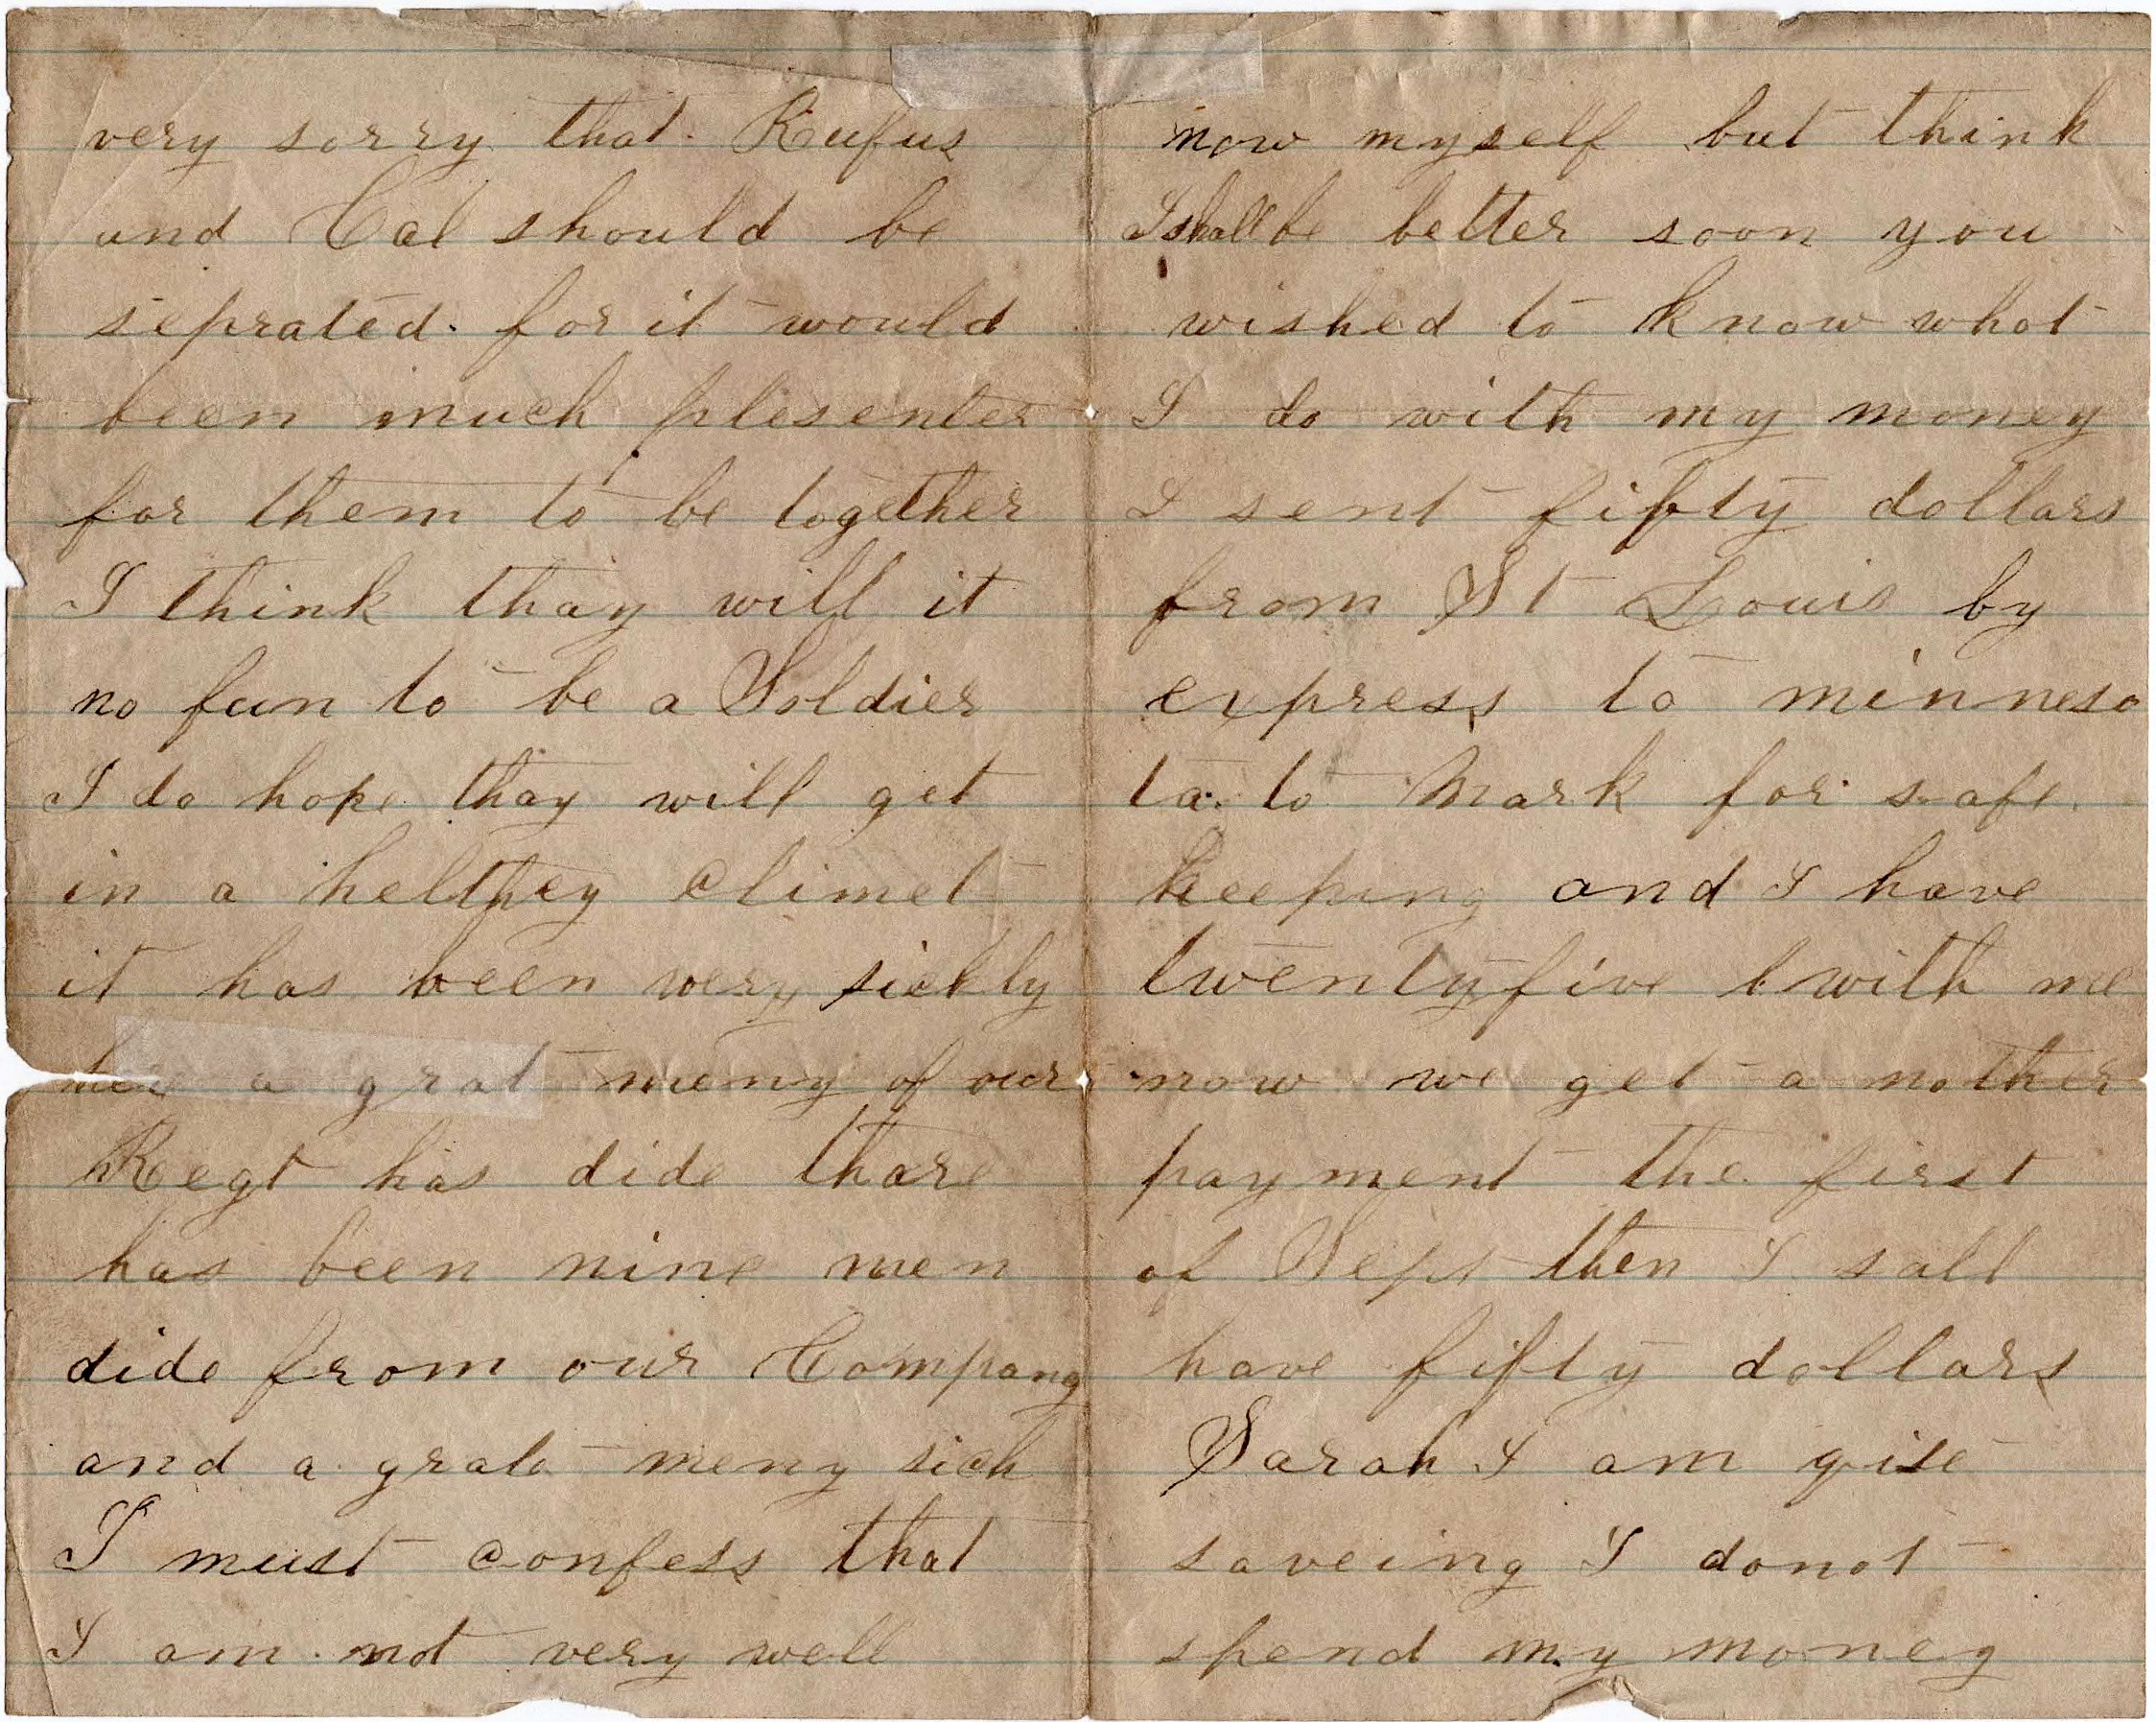 very sorry that Rufus
and Cal should be
seprated. for it would
been much plesenter
for them to be together
I think thay will it
no fun to be a Soldier
I do hope thay will get
in a helthey climet
it has been very sickly
here a grat meny of our
Regt has dide thare
has been nine men
dide from our Company
and a grate meny sick
I must confess that
I am not very well
now myself but think
I shall be better soon you
wished to know what
I do with my money
I sent fifty dollars
from St Louis by
express to minneso
ta. to Mark for safe
keeping and I have
twentyfive with me
now we get a nother
payment the first
of Sept then I sall
have fifty dollars
Sarah I am qite
saveing I donot
spend my money